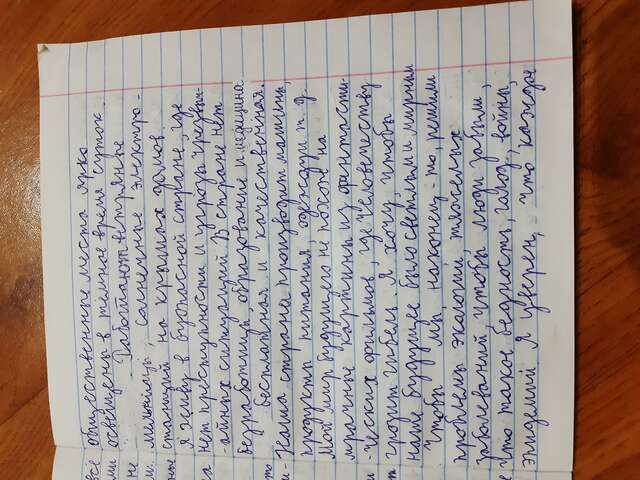 общественные места ярко
освещены в тёмное время суток.
Работают ветряные
мельницы, солнечные электро-
станции на крышах домов.
Я живу в безопасной стране, где
нет преступности и угрозы чрезвы-
-айных ситуаций. В стране нет
безработицы, образование и медицина
бесплатная и качественная.
Наша страна производит машины,
продукты питания, одежду и т.д.
Мой мир будущего не похож на
мрачные картины из фантасти-
-ческих фильмов, где человечеству
грозит гибель. Я хочу, чтобы
наше будущее было светлым и мирным
Чтобы мы наконец-то, решили
проблемы экологии, тяжелых
заболеваний чтобы люди забыли,
что такое бедность, голод, войны,
эпидемий. Я уверен, что каждый
всё
ми
не
м.
ные
са
то
и-
т
е